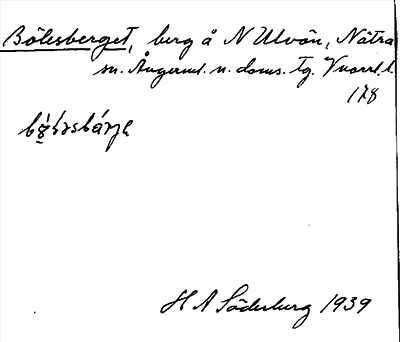 Bölesberget, berg å N Ulvön, Nätra
sn. Ångerml. n. doms. tg. V norrl. l.
178
H A Söderberg 1939